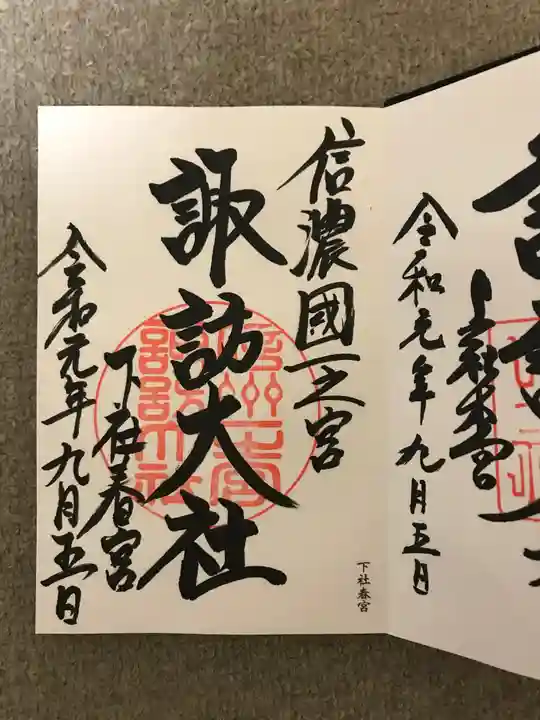 令和元年九月五日
上社本宮
信濃國一之宮
諏訪大社
下社春宮
令和元年九月五日
下社春宮